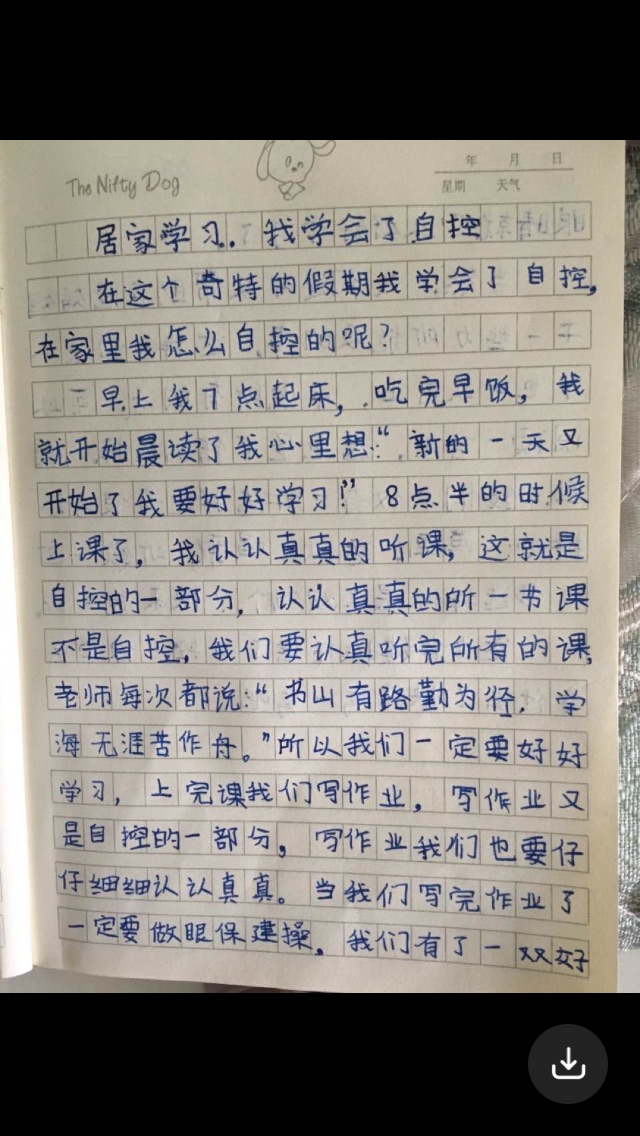 The Nifty Dog
年 月 日
星期 天气
居家学习. 我学会了自控
在这个奇特的假期我学会了自控,
在家里我怎么自控的呢?
早上我7点起床, 吃完早饭, 我
就开始晨读了我心里想:“新的一天又
开始了我要好好学习!” 8点半的时候
上课了, 我认认真真的听课, 这就是
自控的一部分, 认认真真的所一书课
不是自控, 我们要认真听完所有的课,
老师每次都说:“书山有路勤为径. 学
海无涯苦作舟。”所以我们一定要好好
学习, 上完课我们写作业, 写作业又
是自控的一部分, 写作业我们也要仔
仔细细认认真真。当我们写完作业了
一定要做眼保建操, 我们有了一双好